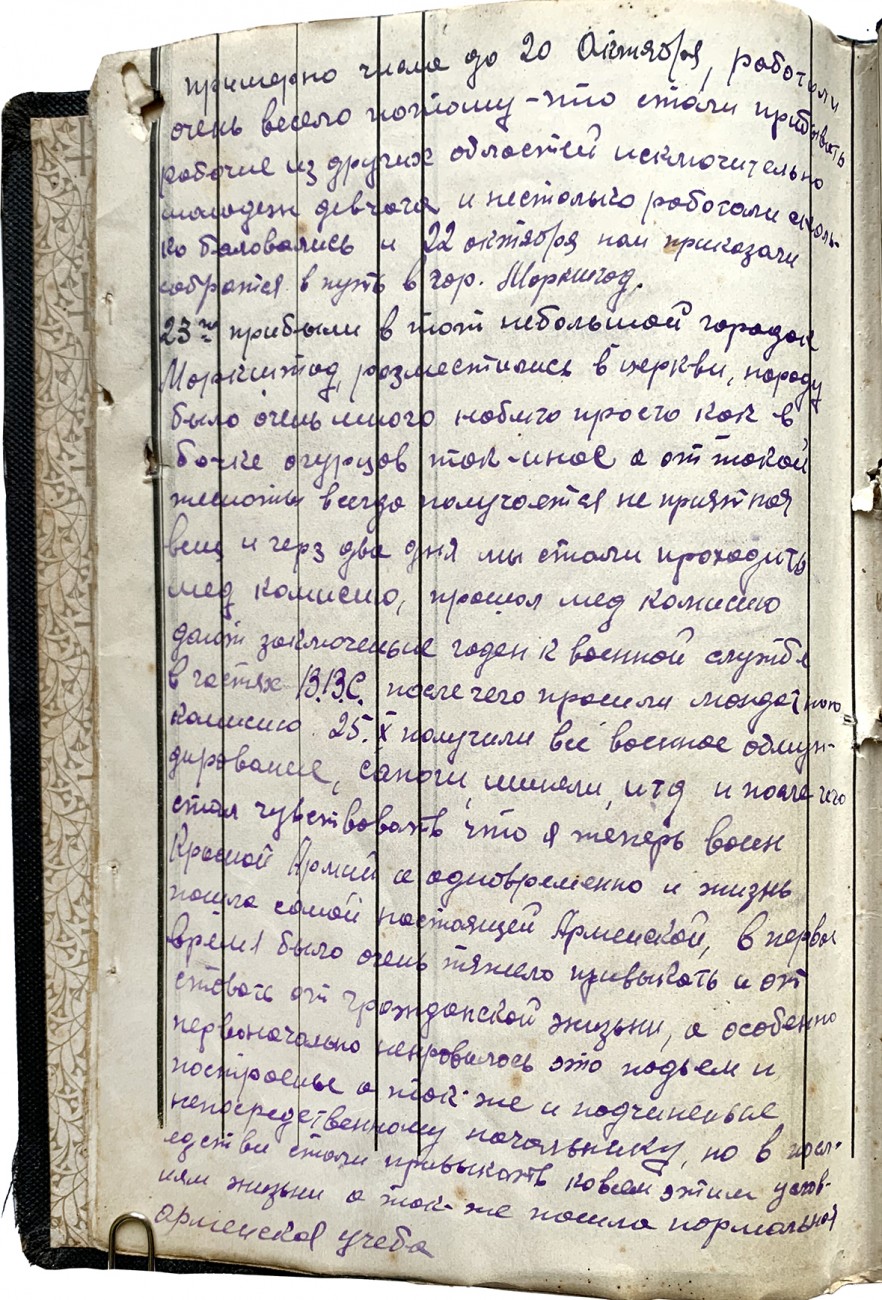 примерно числа до 20 Октября, работали
очень весело потому-что стали прибывать
рабочие из других областей исключительно
молодеж девчата и нестолько работали сколь-
ко баловались и 22 октября нам приказали
собратся в путь в гор.
23го прибыли в тот небольшой городок
розместились в церкви, народу
было очень много набито просто как в
бочке огурцов так-иное а от такой
тесноты всегда получается не приятная
вещ и черз два дня мы стали проходить
мед комисию, прошол мед комисию
дают заключенье годен к военной службе
в частях В.В.С. после чего прошли мондатную
комисию. 25.X получили всё военное обмун-
дирование, сапоги, шинели, итд и после чего
стал чувствовать что я теперь воен
Красной Армии а одновременно и жизнь
пошла самой настоящей Армейской, в первое
время было очень тяжело привыкать и от
ставать от гражданской жизьни, а особенно
первоначально ненровилось это подьем и
построенье а так-же и подчиненье
непосредственному начальнику, но в посл-
едстви стали привыкать ковсем этим услов-
иям жизьни а так-же пошла нормальная
армейская учеба